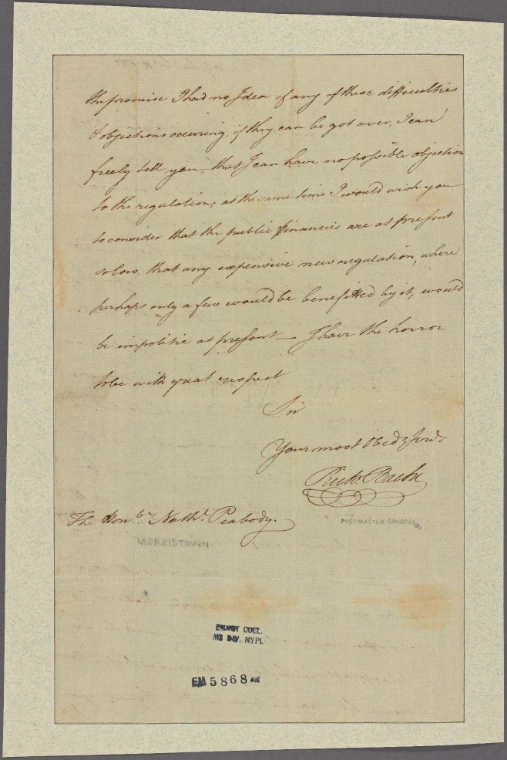 the promise I had no Idea of any of these difficulties
& objections occuring, if they can be got over, I can
freely tell you, that I can have no possible objection
to the regulation; at the same time I would wish you
to consider that the public finances are at present
so low, that any expensive new regulation, where
perhaps only a few would be benefitted by it, would
be impolitic at present — I have the honor
to be with great respect
Sir
Your most Obed. Servt.
Richd. Bache
POSTMASTER GENERAL
The Honble. Nathl. Peabody.
MORRISTOWN
EMMET COLL.
MS DIV. NYPL
EM 5868